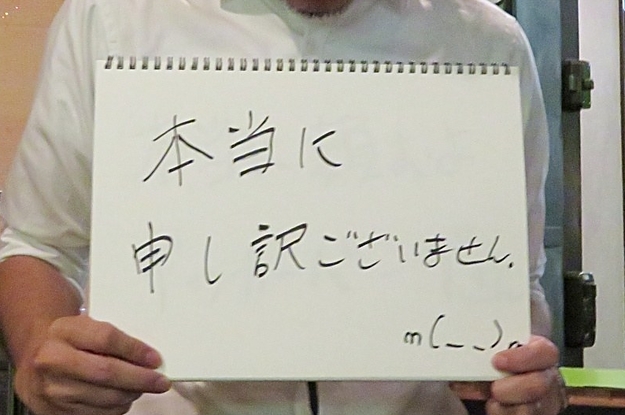 本当に
申し訳ございません.
m(_ _)m